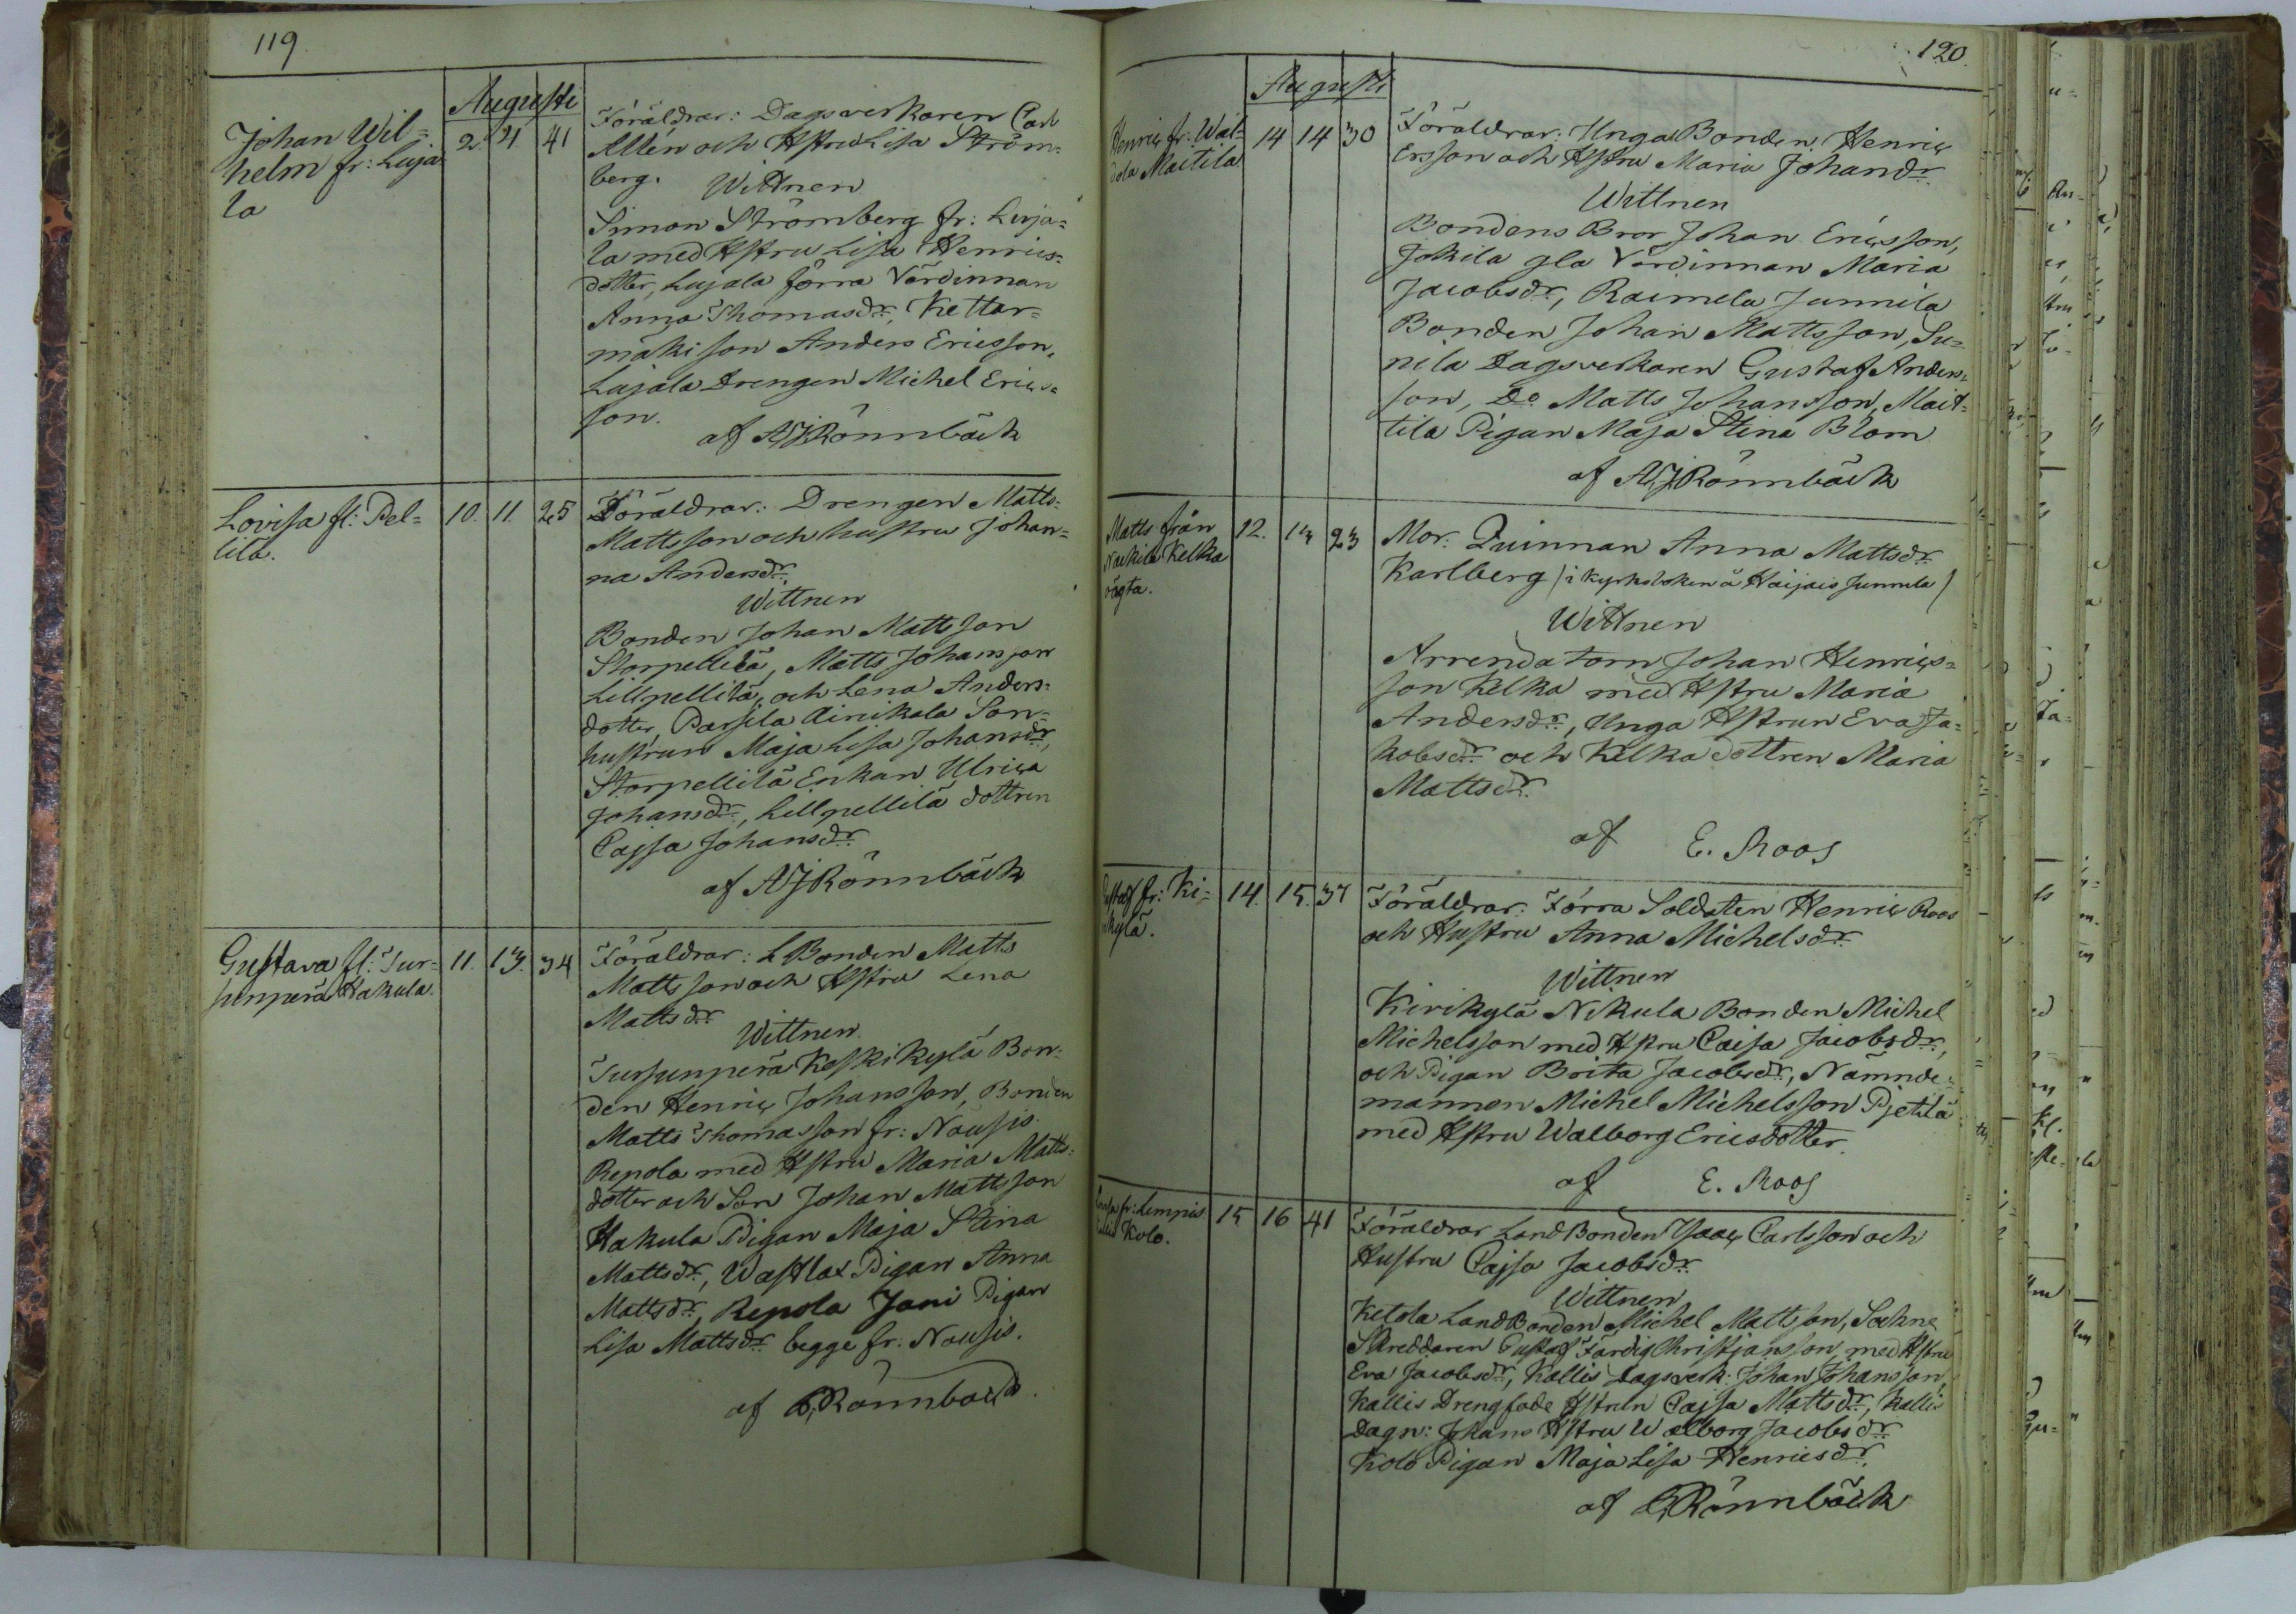 119
Augusti
Johan Wil=
helm fr: Luja
la
2. 4. 41
Föräldrar: Dagsverkaren Carl
Allén och Hstru Lisa Ström=
berg.
Wittnen
Simon Strömberg fr: Luja=
la med Hstru Lisa Henrics=
dotter, Lujala förra Värdinnan
Anna Thomasdr, Kettar=
mäki son Anders Ericsson,
Lujala Drengen Michel Erics=
son.
af AJRönnbäck
Lovisa fl: Pel=
lilä.
10. 11. 25
Föräldrar: Drengen Matts
Mattsson och hustru Johan=
na Andersdr.
Wittnen
Bonden Johan Mattsson
Storpellilä, Matts Johansson
Lillpellilä, och Lena Anders=
dotter, Parsila Ainikala Son=
hustrun Maja Lisa Johansdr,
Storpellilä Enkan Ulrica
Johansdr, Lillpellilä dottren
Cajsa Johansdr
af AJRönnbäck
Gustava fl: Tur=
sunperä Hakula.
11. 13. 34
Föräldrar: L Bonden Matts
Mattsson och Hstru Lena
Mattsdr
Wittnen
Tursunperä Keskikylä Bon=
den Henric Johansson, Bonden
Matts Thomasson fr: Nousis
Repola med Hstru Maria Matts=
dotter och Son Johan Mattsson
Hakula Pigan Maja Stina
Mattsdr, Wastlax Pigan Anna
Mattsdr, Repola Jani Pigan
Lisa Mattsdr begge fr: Nousis.
af Rönnback.
120.
Augusti
Henric fr: Wal=
dola Maitila
14 14 30
Föräldrar: Unga Bonden Henric
Ersson och Hstru Maria Johandr.
Wittnen
Bondens Bror Johan Ericsson,
Jokila gla Värdinnan Maria
Jacobsdr, Raimela Junnila
Bonden Johan Mattsson, Su=
nila Dagsverkaren Gustaf Anders=
son, Do Matts Johansson, Mait=
tila Pigan Maja Stina Blom
af AJRönnbäck
Matts från
Naikila Kelka
ägta.
12. 13 23
Mor: Quinnan Anna Mattsdr.
Karlberg (i kyrkoboken å Haijais Junnula)
Wittnen
Arrendatorn Johan Henrics=
son Kelka med Hstru Maria
Andersdr, Unga Hstrun Eva Ja=
kobsdr och Kelka dottren Maria
Mattsdr.
af E. Roos
Gustaf fr: Ki=
rikylä.
14. 15. 37
Föräldrar: Förra Soldaten Henric Roos
och Hustru Anna Michelsdr
Wittnen
Kirikylä Nikula Bonden Michel
Michelsson med Hstru Caisa Jacobsdr,
och Pigan Brita Jacobsdr, Nämnde=
mannen Michel Michelsson Pjetilä
med Hstru Walborg Ericsdotter.
af E. Roos
fr: Lempis
Kolo.
15 16 41
Föräldrar Land Bonden Isaac Carlsson och
Hustru Cajsa Jacobsdr.
Wittnen
Ketola Land Bonden Michel Mattsson, Sockne
Skreddaren Gustaf Färdig Christjansson med Hstru
Eva Jacobsdr, Kallis Dagsverk: Johan Johansson,
Kallis Drengfade Hstrun Cajsa Mattsdr, Kallis
Dagsv: Johans Hstru Walborg Jacobsdr
Kolo Pigan Maja Lisa Henricsdr.
af Rönnbäck